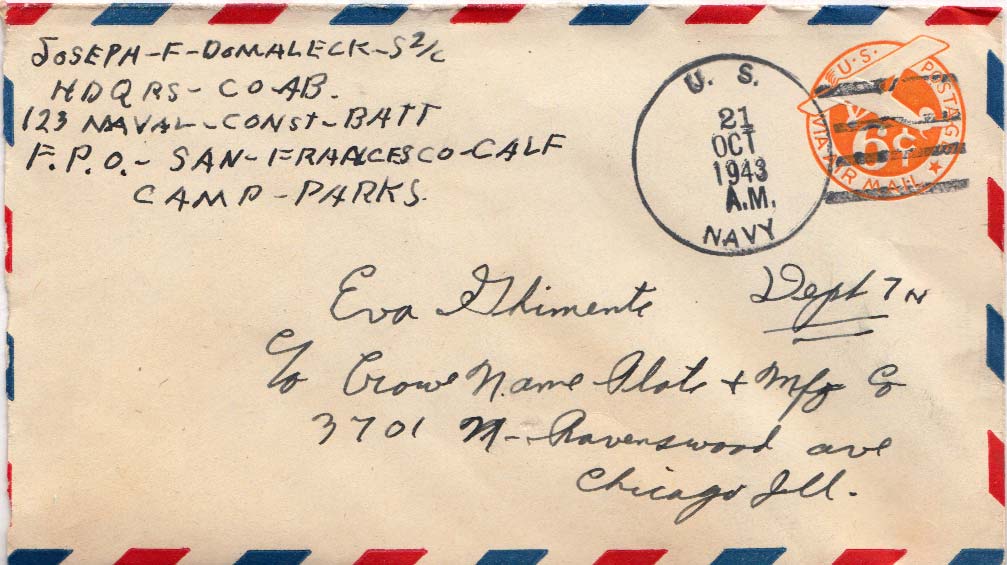 JOSEPH-F-DOMALECK-S2/C
HDQRS-CO-AB.
123 NAVAL-CONST-BATT
F.P.O.-SAN-FRANCESCO-CALF
CAMP-PARKS.
U. S.
21
OCT
1943
A.M.
NAVY
U.S. POSTAGE
6¢
VIA AIR MAIL
Eva Dept 7N
c/o Crowe Name Plate + Mfg Co
3701 N- Ravenswood ave
Chicago Ill.